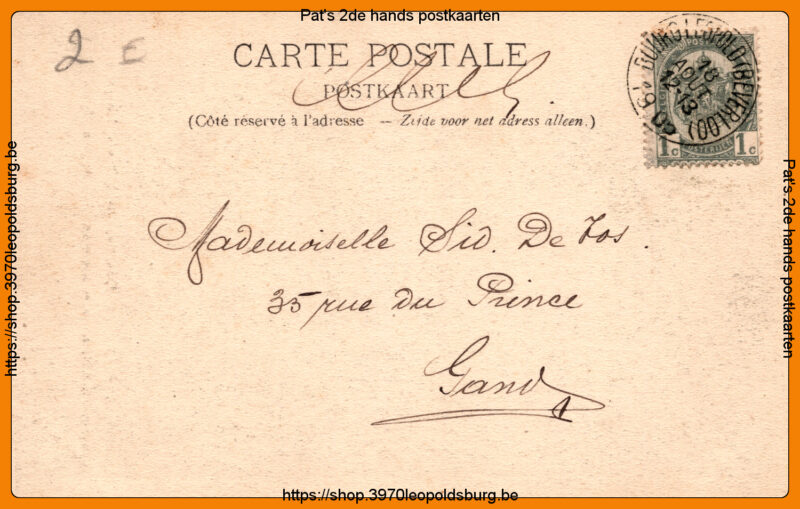 Pat's 2de hands postkaarten
2 E
CARTE POSTALE
POSTKAART
(Côté réservé à l'adresse – Zijde voor het adress alleen.)
BOURG-LEOPOLD (BEVERLOO)
18
AOUT
12-13
1902
1c 1c
Mademoiselle Sid. De Vos.
35 rue du Prince
Gand
https://shop.3970leopoldsburg.be
Pat's 2de hands postkaarten
https://shop.3970leopoldsburg.be